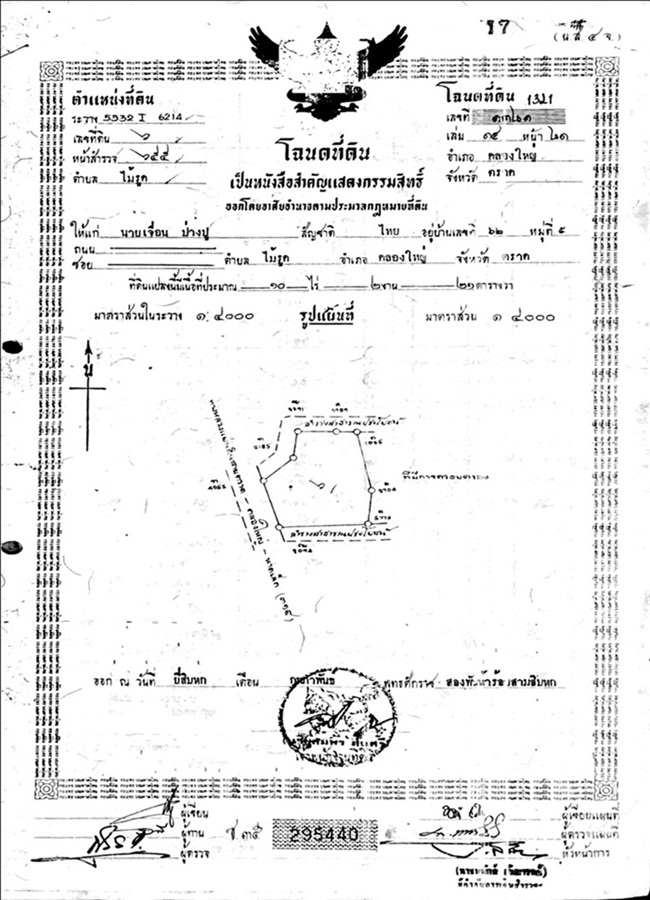 (น.ส.๔ จ.)
ตำแหน่งที่ดิน
ระวาง 5532 I 6214
เลขที่ดิน ๖
หน้าสำรวจ ๖๕๕
ตำบล ไม้รูด
โฉนดที่ดิน 1321
เลขที่
เล่ม ๑๔ หน้า ๒๑
อำเภอ คลองใหญ่
จังหวัด ตราด
โฉนดที่ดิน
เป็นหนังสือสำคัญแสดงกรรมสิทธิ์
ออกโดยอาศัยอำนาจตามประมวลกฎหมายที่ดิน
ให้แก่ นายเจื่อน ป่างปู สัญชาติ ไทย อยู่บ้านเลขที่ ๖๒ หมู่ที่ ๕
ถนน
ซอย ตำบล ไม้รูด อำเภอ คลองใหญ่ จังหวัด ตราด
ที่ดินแปลงนี้มีเนื้อที่ประมาณ ๑๐ ไร่ ๒ งาน ๒๑ ตารางวา
มาตราส่วนในระวาง ๑:๔๐๐๐ รูปแผนที่ มาตราส่วน ๑ ๔๐๐๐
น
ลำรางสาธารณประโยชน์
ที่มีการครอบครอง
ลำรางสาธารณประโยชน์
ออก ณ วันที่ ยี่สิบหก เดือน กุมภาพันธ์ พุทธศักราช สองพันห้าร้อยสามสิบหก
ผู้เขียน
ผู้ทาน
ผู้ตรวจ
295440
ผู้เขียนแผนที่
ผู้ตรวจแผนที่
หัวหน้าการ